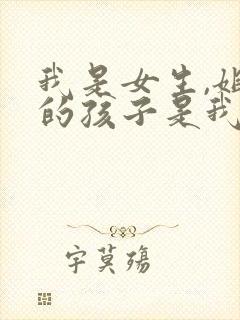 我是女生,姐
的孩子是我
宇莫殇